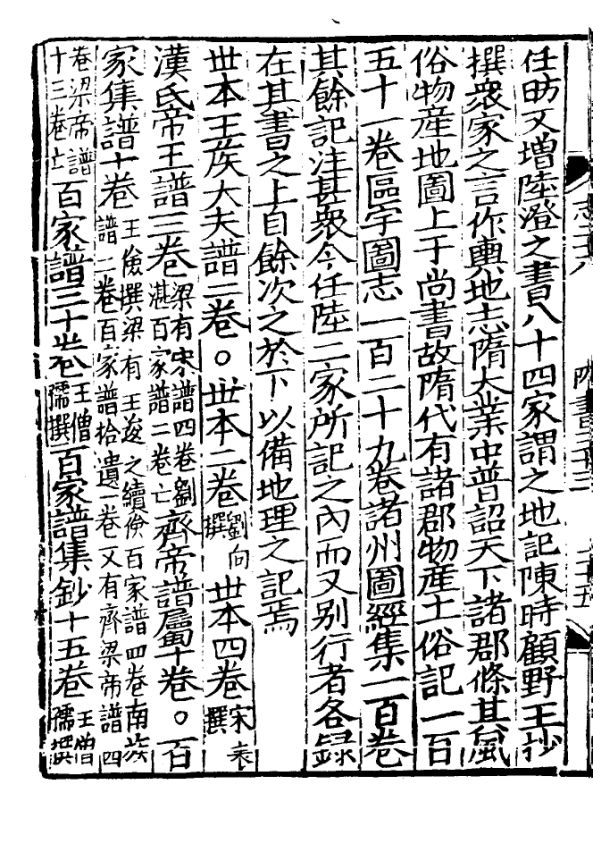 志二八 隋書三十三
任昉又增陸澄之書八十四家謂之地記陳時顧野王抄
撰衆家之言作輿地志隋大業中普詔天下諸郡條其風
俗物産地圖上于尚書故隋代有諸郡物産土俗記一百
五十一卷區宇圖志一百二十九卷諸州圖經集一百卷
其餘記注甚衆今任陸二家所記之內而又别行者各録
在其書之上自餘次之於下以備地理之記焉
世本王侯大夫譜二卷○世本二卷劉向撰世本四卷宋衷撰
漢氏帝王譜三卷梁有宋譜四卷劉湛百家譜二卷亡齊帝譜屬十卷○百
家集譜十卷王儉撰梁有王逡之續儉百家譜四卷南族譜二卷百家譜拾遺一卷又有齊梁帝譜四
卷梁帝譜十三卷亡百家譜三十卷王僧孺撰百家譜集鈔十五卷王僧孺撰